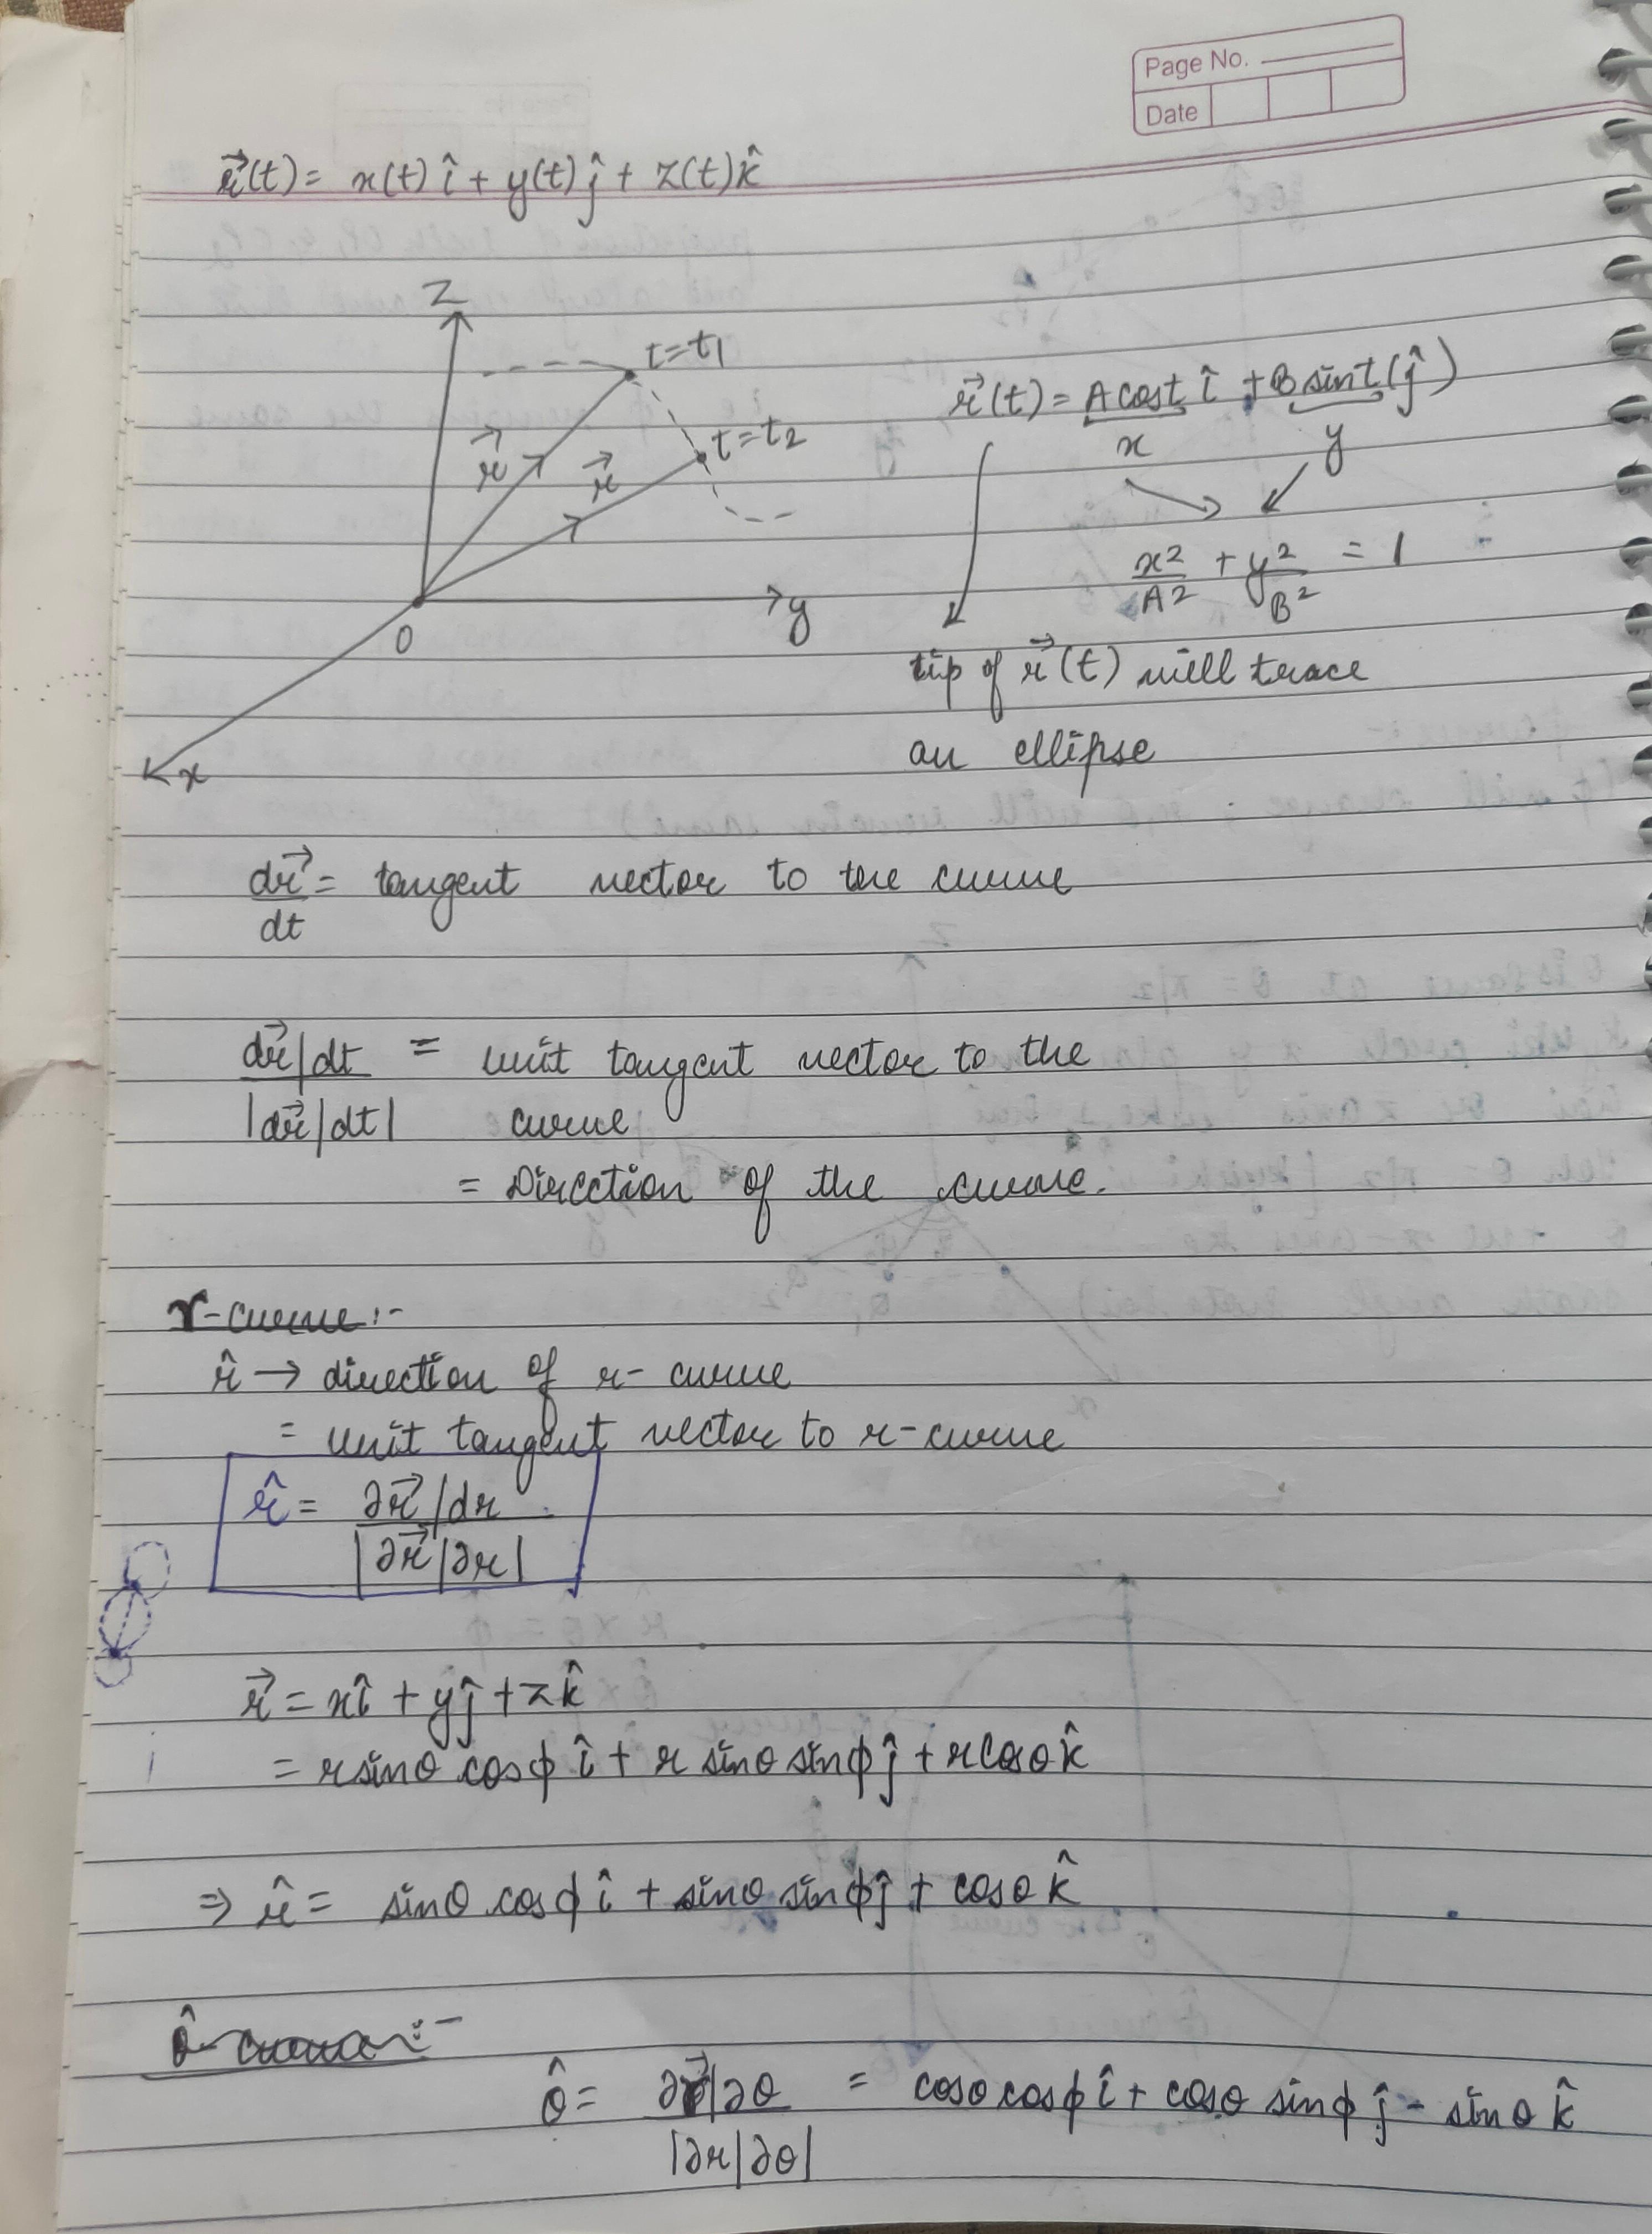 Page No.
Date
r⃗(t) = x(t) î + y(t) ĵ + z(t) k̂
z
t=t₁
t=t₂
r⃗
r⃗
y
0
x
r⃗(t) = A cost î + B sint (ĵ)
x
y
x²/A² + y²/B² = 1
tip of r⃗(t) will trace
an ellipse
dr⃗/dt = tangent vector to the curve
dr⃗/dt / |dr⃗/dt| = unit tangent vector to the
curve
= Direction of the curve.
r-curve:-
r̂ → direction of r-curve
= unit tangent vector to r-curve
r̂ = ∂r⃗/dr / |∂r⃗/∂r|
r⃗ = xî + yĵ + zk̂
= r sinθ cosϕ î + r sinθ sinϕ ĵ + r cosθ k̂
⇒ r̂ = sinθ cosϕ î + sinθ sinϕ ĵ + cosθ k̂
θ̂-curve:-
θ̂ = ∂r⃗/∂θ / |∂r/∂θ| = cosθ cosϕ î + cosθ sinϕ ĵ - sinθ k̂